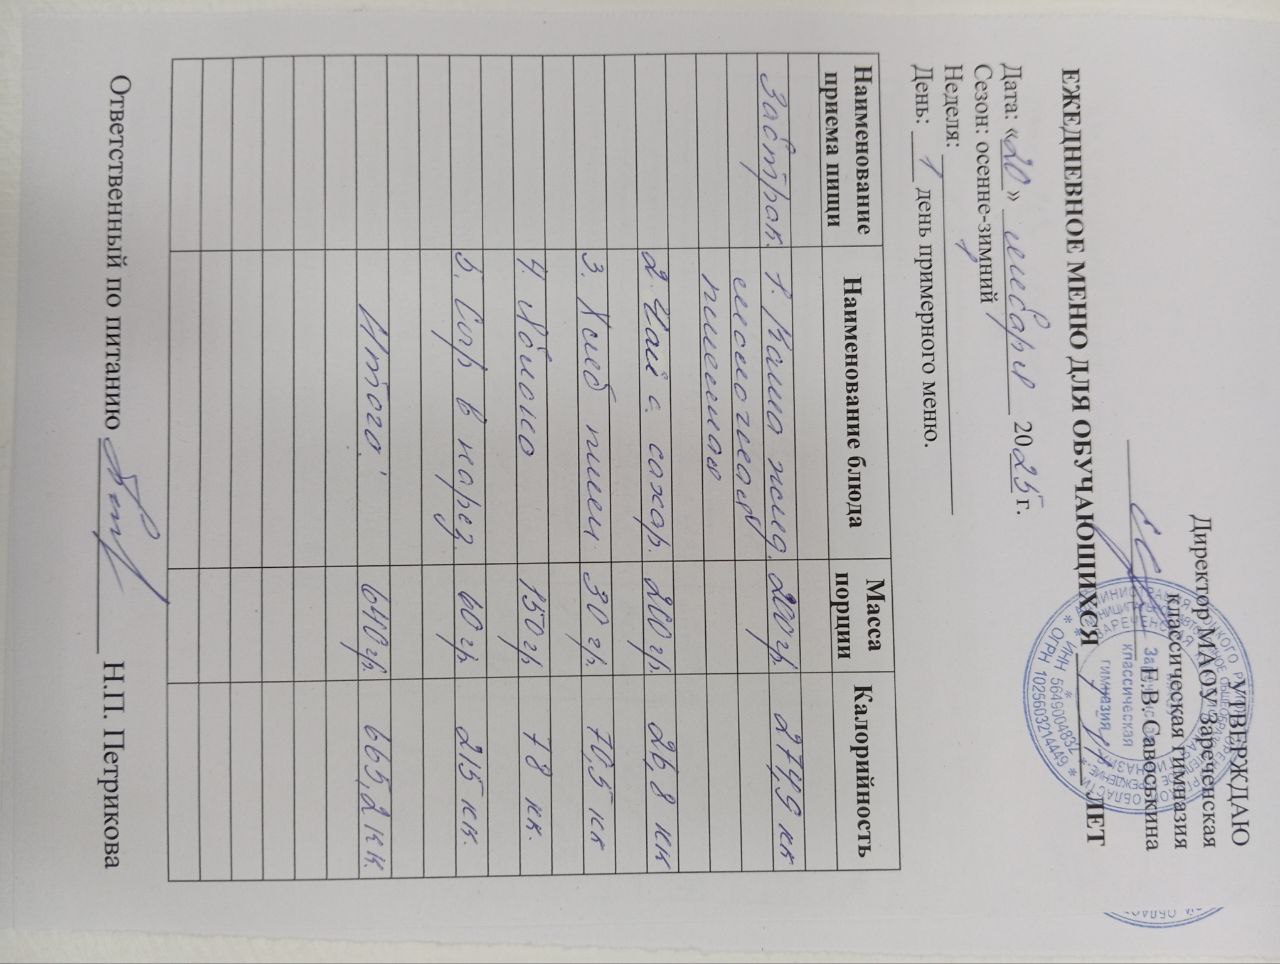 УТВЕРЖДАЮ
Директор МАОУ Зареченская
классическая гимназия
Е.В. Савоськина
ЕЖЕДНЕВНОЕ МЕНЮ ДЛЯ ОБУЧАЮЩИХСЯ ЛЕТ
Дата: «20» января 2025г.
Сезон: осенне-зимний
Неделя: 1
День: 1 день примерного меню.
Наименование приема пищи Наименование блюда Масса порции Калорийность
Завтрак. 1. Каша жид. 200гр. 274,9 кк
молочная
пшенная
2. Чай с сахар. 200гр. 26,8 кк
3. Хлеб пшен. 30гр. 70,5 кк
4. Яблоко 150гр 78 кк.
5. Сыр в нарез. 60гр. 215 кк.
Итого: 640гр. 665,2 кк.
Ответственный по питанию Н.П. Петрикова
ИНН 5649004832
ОГРН 1025603214449
классическая
гимназия